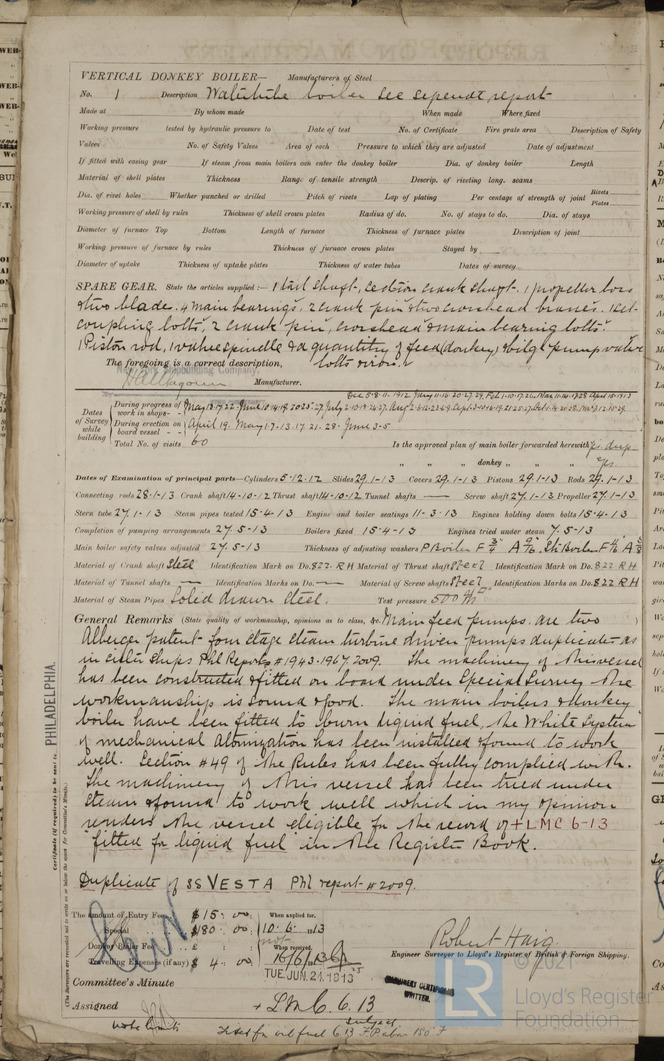 VERTICAL DONKEY BOILER— Manufacturers of Steel
No. 1 Description Watertube boiler see seperate report
Made at By whom made When made Where fixed
Working pressure tested by hydraulic pressure to Date of test No. of Certificate Fire grate area Description of Safety
Valves No. of Safety Valves Area of each Pressure to which they are adjusted Date of adjustment
If fitted with easing gear If steam from main boilers can enter the donkey boiler Dia. of donkey boiler Length
Material of shell plates Thickness Range of tensile strength Descrip. of riveting long. seams
Dia. of rivet holes Whether punched or drilled Pitch of rivets Lap of plating Per centage of strength of joint Rivets Plates
Working pressure of shell by rules Thickness of shell crown plates Radius of do. No. of stays to do. Dia. of stays
Diameter of furnace Top Bottom Length of furnace Thickness of furnace plates Description of joint
Working pressure of furnace by rules Thickness of furnace crown plates Stayed by
Diameter of uptake Thickness of uptake plates Thickness of water tubes Dates of survey
SPARE GEAR. State the articles supplied:— 1 tail shaft, section crank shaft. 1 propeller boss
& two blade. 4 main bearings, 2 crank pin & two crosshead brasses. 1 set
coupling bolts, 2 crank pin, crosshead & main bearing bolts.
1 Piston rod, 1 valve spindle & a quantity of feed (donkey) & bilge pump valve
The foregoing is a correct description, bolts & iron.
Manufacturer.
Dates of Survey while building
During progress of work in shops - -
During erection on board vessel - - April 19. May 1-7-13-17-21-28- June 3-5
Total No. of visits 60 Is the approved plan of main boiler forwarded herewith
" " " donkey " " "
Dates of Examination of principal parts—Cylinders 5-12-12 Slides 29-1-13 Covers 29-1-13 Pistons 29-1-13 Rods 29-1-13
Connecting rods 28-1-13 Crank shaft 14-10-12 Thrust shaft 14-10-12 Tunnel shafts — Screw shaft 27-1-13 Propeller 27-1-13
Stern tube 27-1-13 Steam pipes tested 15-4-13 Engine and boiler seatings 11-3-13 Engines holding down bolts 15-4-13
Completion of pumping arrangements 27-5-13 Boilers fixed 15-4-13 Engines tried under steam 7-5-13
Main boiler safety valves adjusted 27-5-13 Thickness of adjusting washers
Material of Crank shaft Steel Identification Mark on Do. 822 RH Material of Thrust shaft Steel Identification Mark on Do. 822 RH
Material of Tunnel shafts — Identification Marks on Do. — Material of Screw shafts Steel Identification Marks on Do. 822 RH
Material of Steam Pipes Solid drawn steel. Test pressure 500
General Remarks (State quality of workmanship, opinions as to class, &c. Main feed pumps. are two
Alberger patent four stage steam turbine driven pumps duplicate as
in sister ships Phl Reports #1943-1967-2009. The machinery of this vessel
has been constructed & fitted on board under Special Survey the
workmanship is sound & good. The main boilers & donkey
boiler have been fitted to burn liquid fuel, the White System
of mechanical Atomization has been installed & found to work
well. Section #49 of the Rules has been fully complied with.
The machinery of this vessel has been tried under
steam & found to work well which in my opinion
renders the vessel eligible for the record of + LMC 6-13
"fitted for liquid fuel" in the Register Book.
Duplicate of SS VESTA Phl report #2009.
PHILADELPHIA.
Certificate (if required) to be sent to
(The Surveyors are requested not to write on or below the space for Committee's Minute.)
The amount of Entry Fee $ 15 : 00 When applied for,
Special $ 180 : 00 10.6.1913
Donkey Boiler Fee £ : When received,
Travelling Expenses (if any) $ 4 : 00 16/6/13
Robert Haig
Engineer Surveyor to Lloyd's Register of British & Foreign Shipping.
Committee's Minute TUE. JUN. 24. 1913
MACHINERY CERTIFICATE WRITTEN.
Assigned + LMC. 6.13
subject
Fitted for oil fuel 6.13 F.P. above 150° F
LR © 2021
Lloyd's Register
Foundation